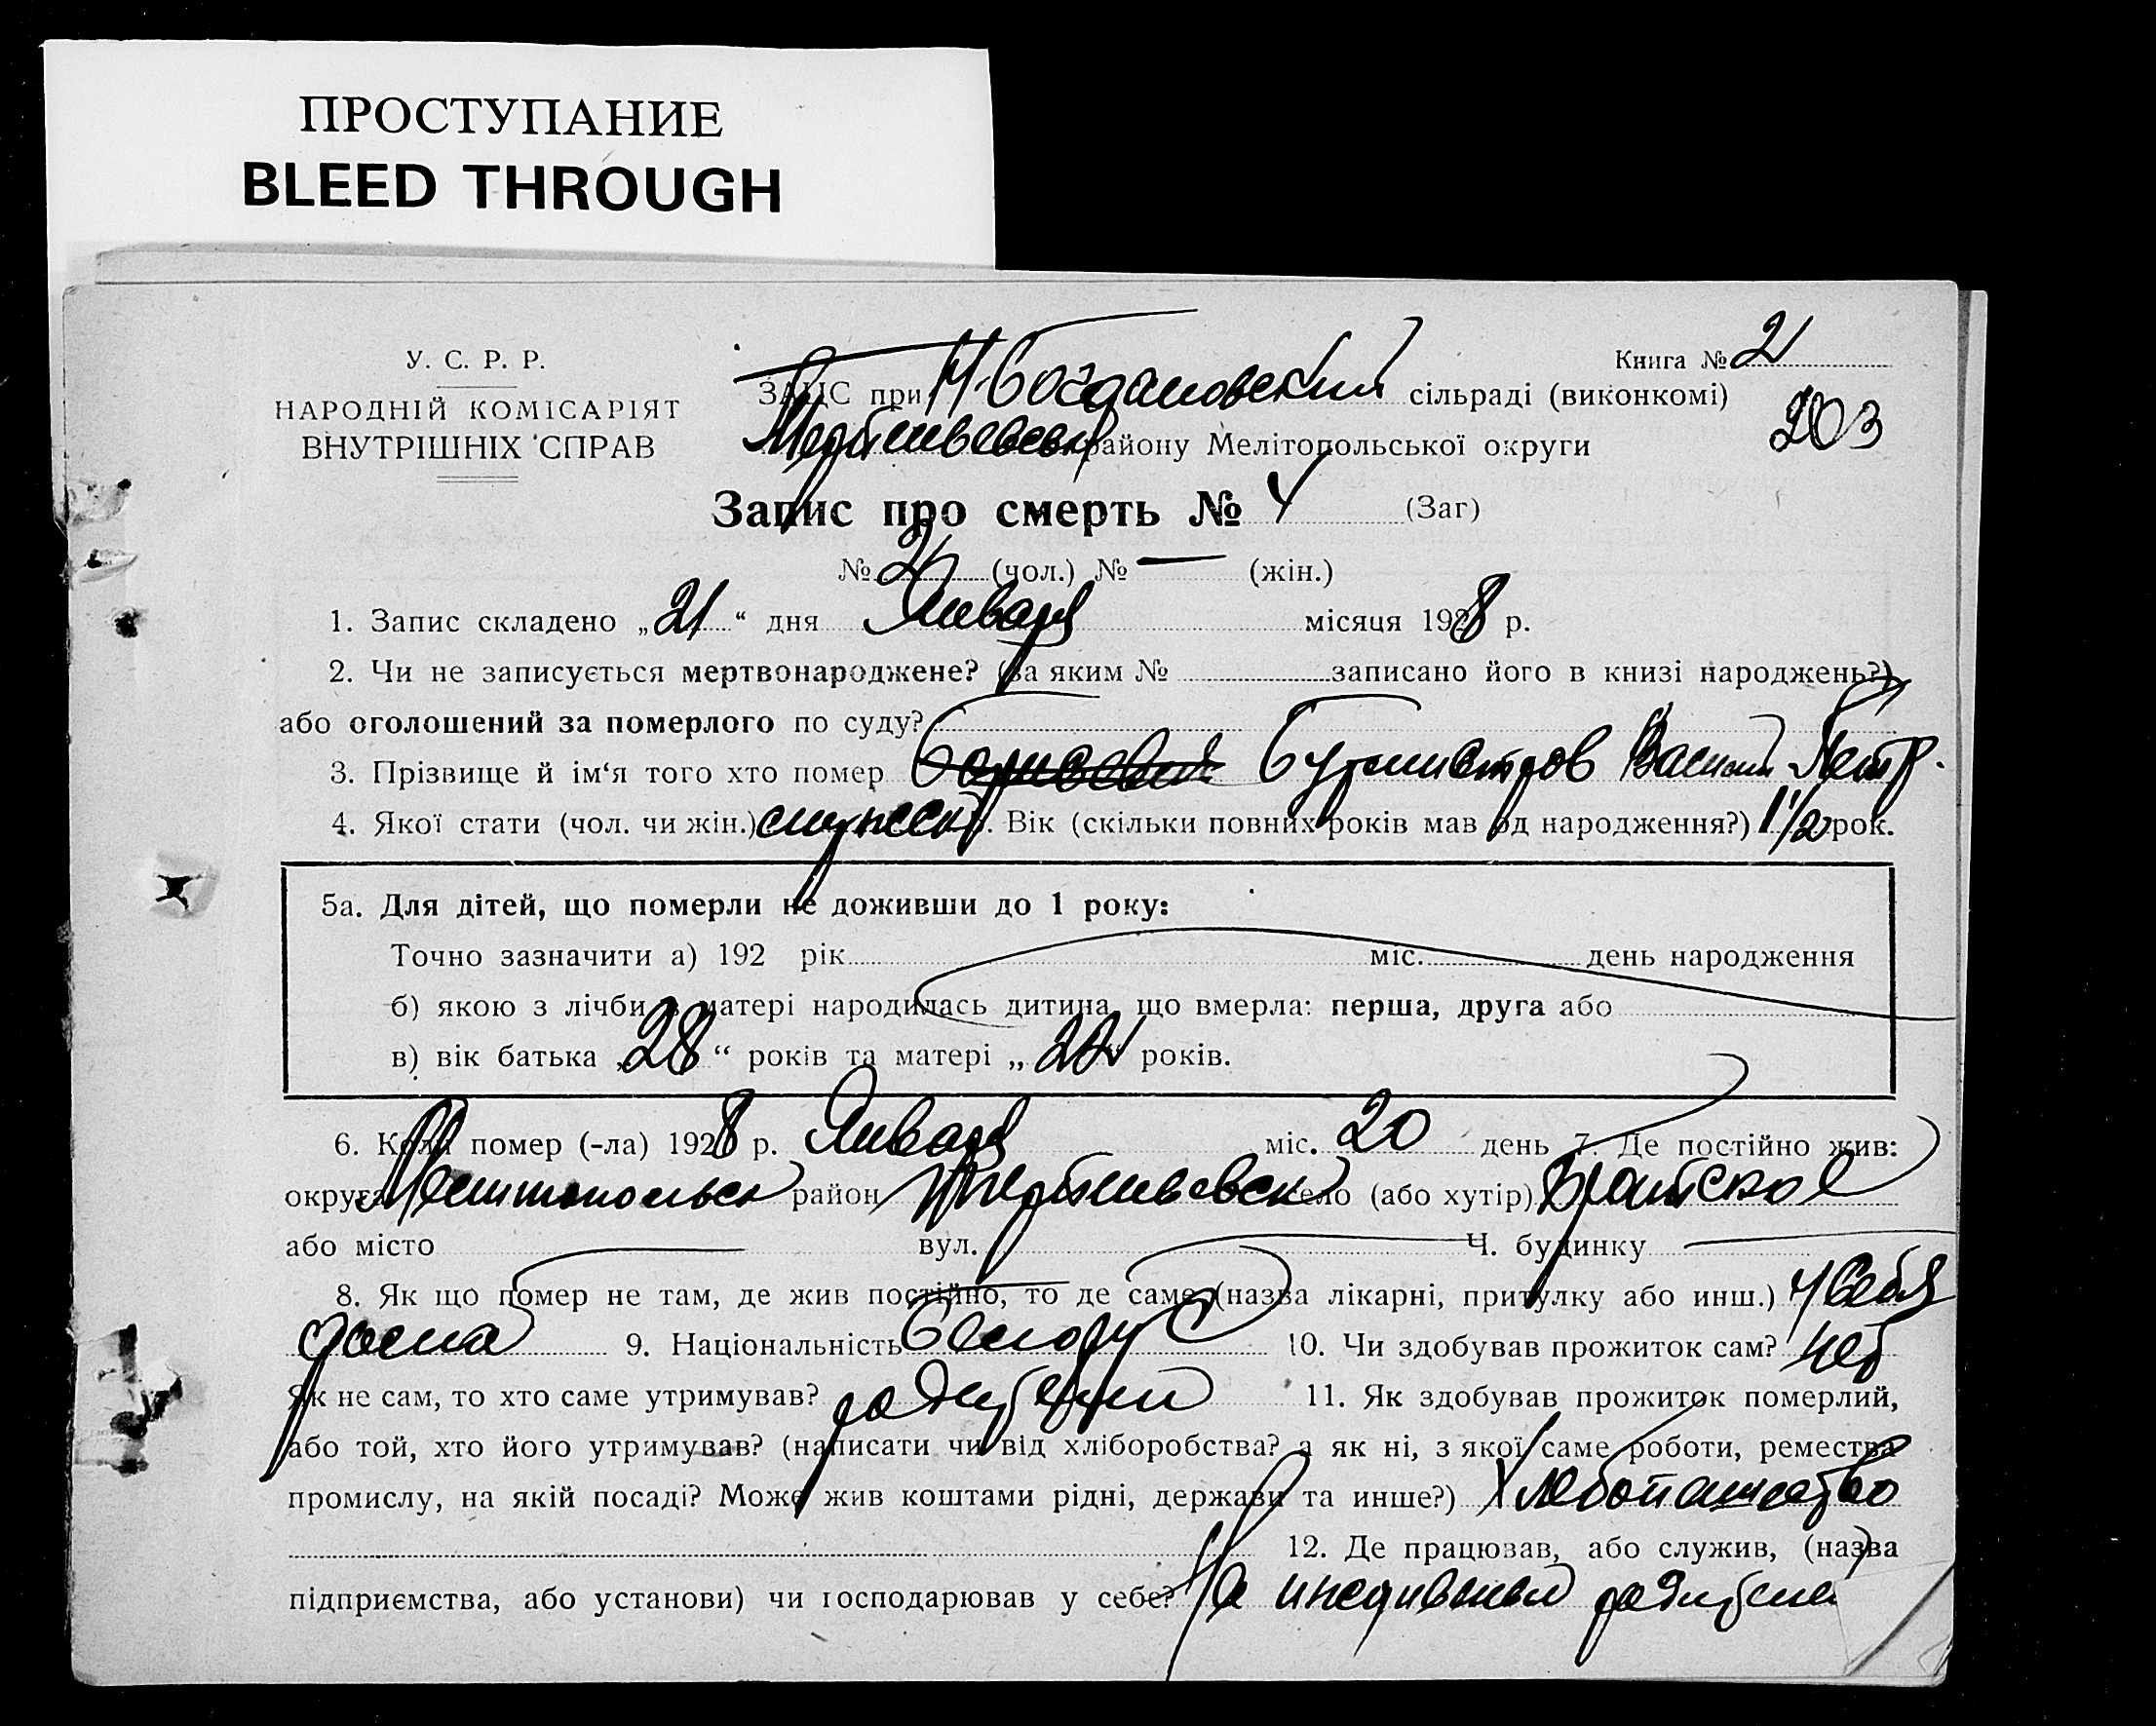 ПРОСТУПАНИЕ
BLEED THROUGH
У. С. Р. Р.
НАРОДНІЙ КОМІСАРІЯТ
ВНУТРІШНІХ СПРАВ
Книга № 2
ЗАЦС при Н-Богдановский сільраді (виконкомі)
203
району Мелітопольської округи
Запис про смерть № 4 (Заг)
№ 2 (чол.) № — (жін.)
1. Запис складено „21“ дня Января місяця 1928 р.
2. Чи не записується мертвонароджене? (За яким № записано його в книзі народжень?)
або оголошений за померлого по суду?
3. Прізвище й ім‘я того хто помер Бурмистров Василий Петр.
4. Якої стати (чол. чи жін.) мужеск. Вік (скільки повних років мав од народження?) 1 1/2 рок.
5а. Для дітей, що померли не доживши до 1 року:
Точно зазначити а) 192 рік міс. день народження
б) якою з лічби в матері народилась дитина, що вмерла: перша, друга або
в) вік батька „28“ років та матері „22“ років.
6. Коли помер (-ла) 1928 р. Января міс. 20 день 7. Де постійно жив:
округа Мелитопольск район село (або хутір) Братское
або місто вул. Ч. будинку
8. Як що помер не там, де жив постійно, то де саме (назва лікарні, притулку або инш.) у себя
дома 9. Національність белорус 10. Чи здобував прожиток сам? нет
Як не сам, то хто саме утримував? родители 11. Як здобував прожиток померлий,
або той, хто його утримував? (написати чи від хліборобства? а як ні, з якої саме роботи, ремества
промислу, на якій посаді? Може жив коштами рідні, держави та инше?) Хлебопашество
12. Де працював, або служив, (назва
підприємства, або установи) чи господарював у себе? На иждивении родителей